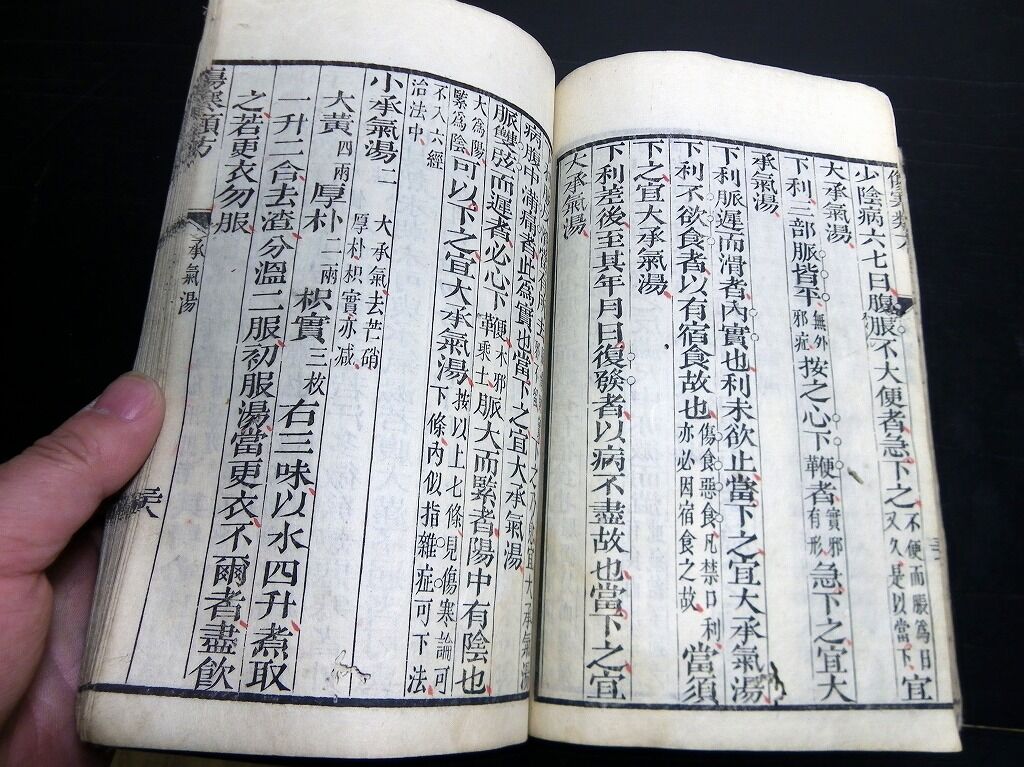 少陰病六七日腹脹不大便者急下之不便而脹為日又久是以當下宜
大承氣湯
下利三部脈皆平無外邪症按之心下鞕者實邪有形急下之宜大
承氣湯
下利脈遲而滑者內實也利未欲止當下之宜大承氣湯
下利不欲食者以有宿食故也傷食惡食凡禁口利亦必因宿食之故當須
下之宜大承氣湯
下利差後至其年月日復發者以病不盡故也當下之宜
大承氣湯
病腹中滿痛者此為實也當下之宜大承氣湯
脈雙弦而遲者必心下鞕木邪乘土脈大而緊者陽中有陰也
大為陽緊為陰可以下之宜大承氣湯按以上七條見傷寒論可下條內似指雜症可下法
不入六經治法中
小承氣湯二大承氣去芒硝厚朴枳實亦减
大黃四兩厚朴二兩枳實三枚右三味以水四升煮取
一升二合去渣分溫二服初服湯當更衣不爾者盡飲
之若更衣勿服
傷寒類方 承氣湯